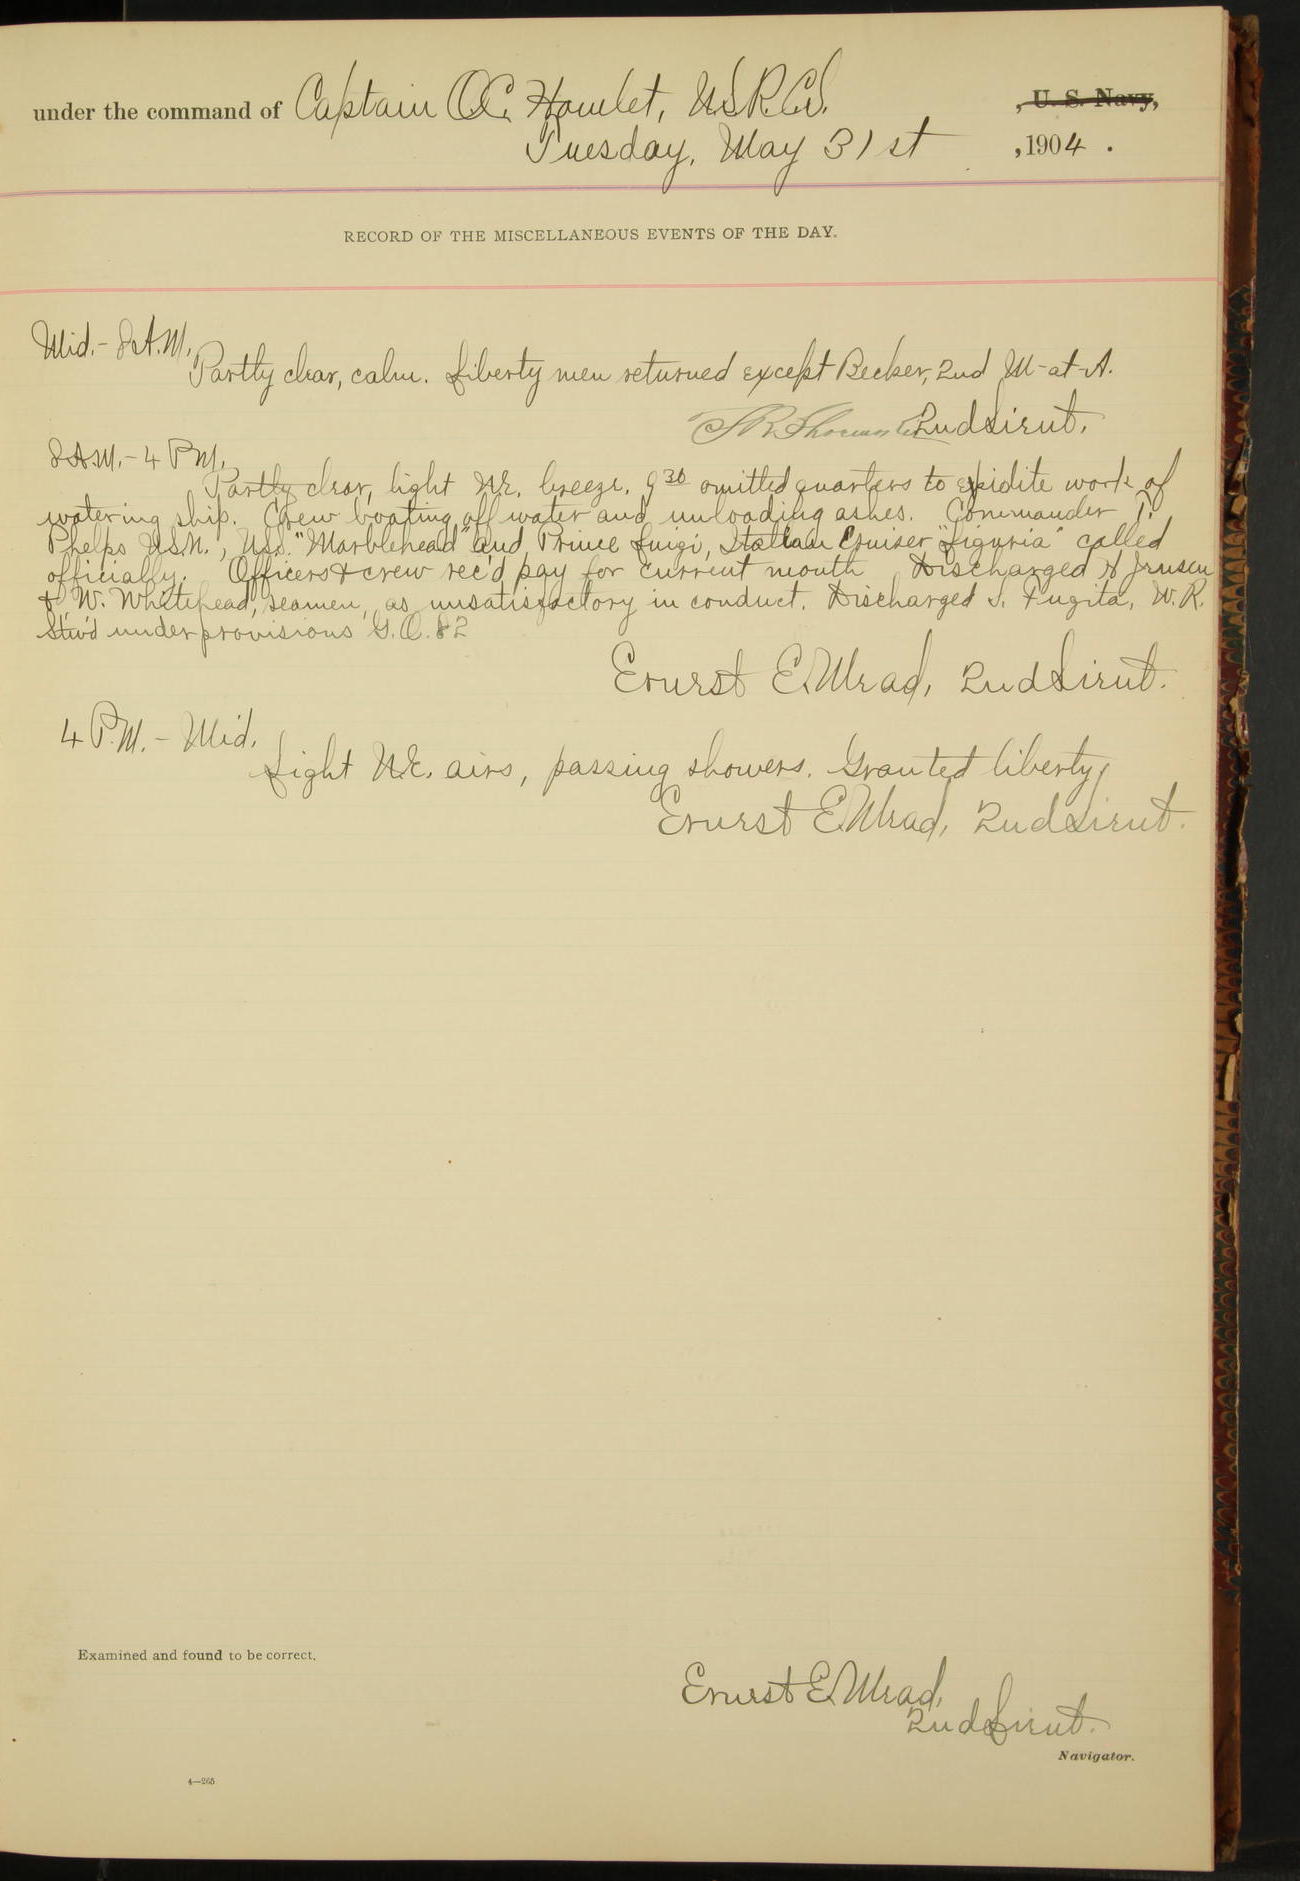 under the command of Captain O.C. Hamlet, U.S.R.C.S. , U. S. Navy,
Tuesday, May 31st , 1904 .
RECORD OF THE MISCELLANEOUS EVENTS OF THE DAY.
Mid.- 8 A.M.
Partly clear, calm. Liberty men returned except Becker, 2nd M-at-A.
2nd Lieut.
8 A.M.- 4 P.M.
Partly clear, light N.E. breeze. 9 30 omitted quarters to expidite work of
watering ship. Crew boating off water and unloading ashes. Commander T.
Phelps U.S.N., U.S.S. "Marblehead" and Prince Luigi, Italian Cruiser "Liguria" called
officially. Officers & crew rec'd pay for current month Discharged H Jensen
& W. Whitehead, seamen, as unsatisfactory in conduct. Discharged S. Fugita, W.R.
Stw'd under provisions G.O. 82
Ernest E. Mead, 2nd Lieut.
4 P.M. - Mid.
Light N.E. airs, passing showers. Granted liberty,
Ernest E. Mead, 2nd Lieut.
Examined and found to be correct.
Ernest E. Mead,
2nd Lieut.
Navigator.
4—265